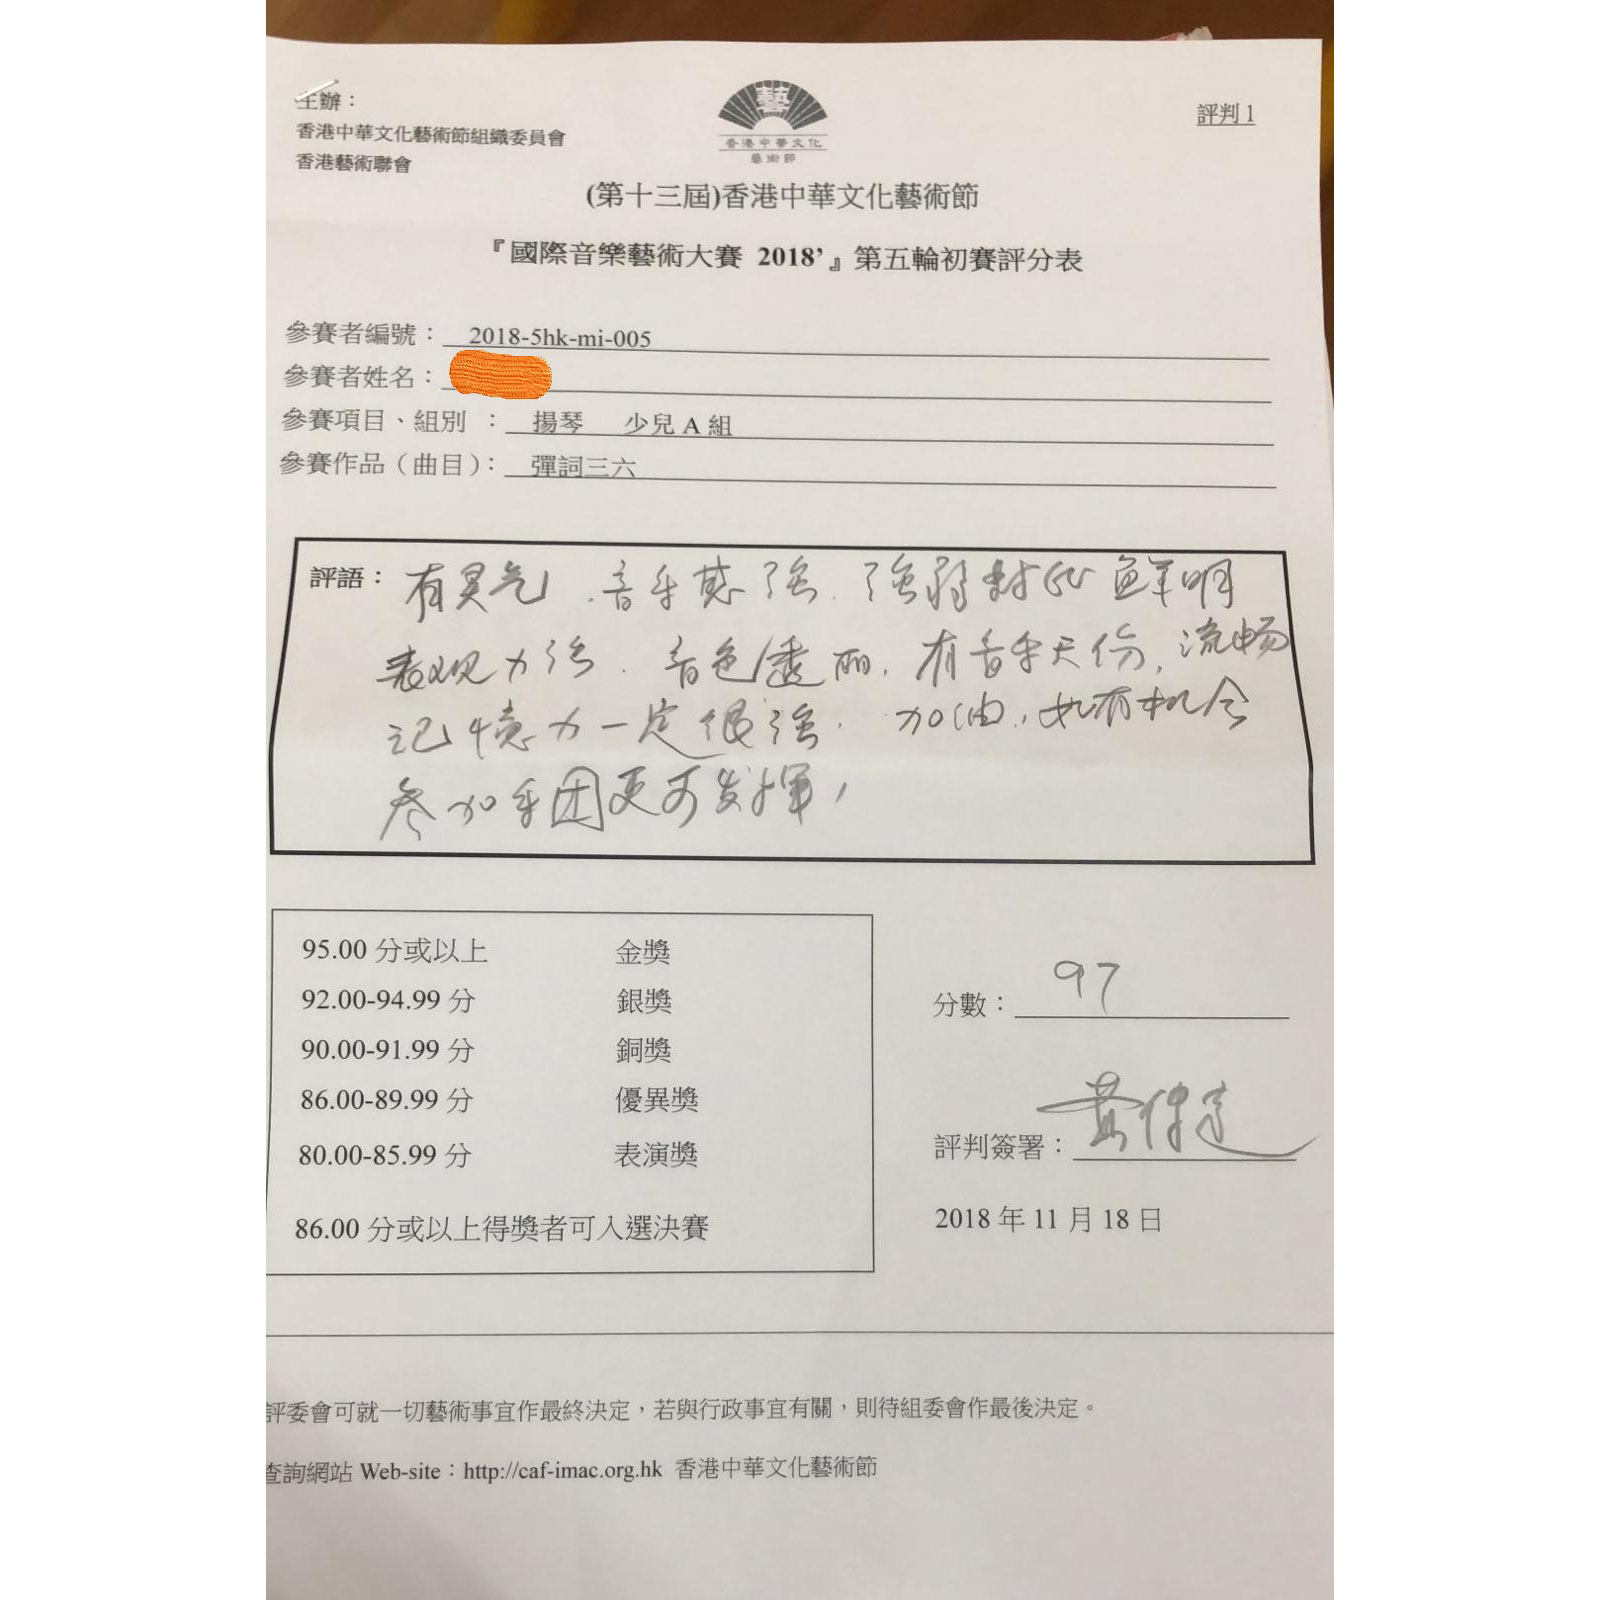 主辦：
香港中華文化藝術節組織委員會
香港藝術聯會
藝
香港中華文化
藝術節
評判1
(第十三屆)香港中華文化藝術節
『國際音樂藝術大賽 2018’』第五輪初賽評分表
參賽者編號： 2018-5hk-mi-005
參賽者姓名：
參賽項目、組別 ： 揚琴 少兒 A 組
參賽作品（曲目）： 彈詞三六
評語： 有灵气．音乐感強．強弱对比鮮明
表现力強．音色透丽．有音乐天份，流畅
记憶力一定很強．加油，如有机会
参加乐团更可发揮，
95.00 分或以上 金獎
92.00-94.99 分 銀獎
90.00-91.99 分 銅獎
86.00-89.99 分 優異獎
80.00-85.99 分 表演獎
86.00 分或以上得獎者可入選決賽
分數： 97
評判簽署： 黃
2018 年 11 月 18 日
評委會可就一切藝術事宜作最終決定，若與行政事宜有關，則待組委會作最後決定。
查詢網站 Web-site：http://caf-imac.org.hk 香港中華文化藝術節